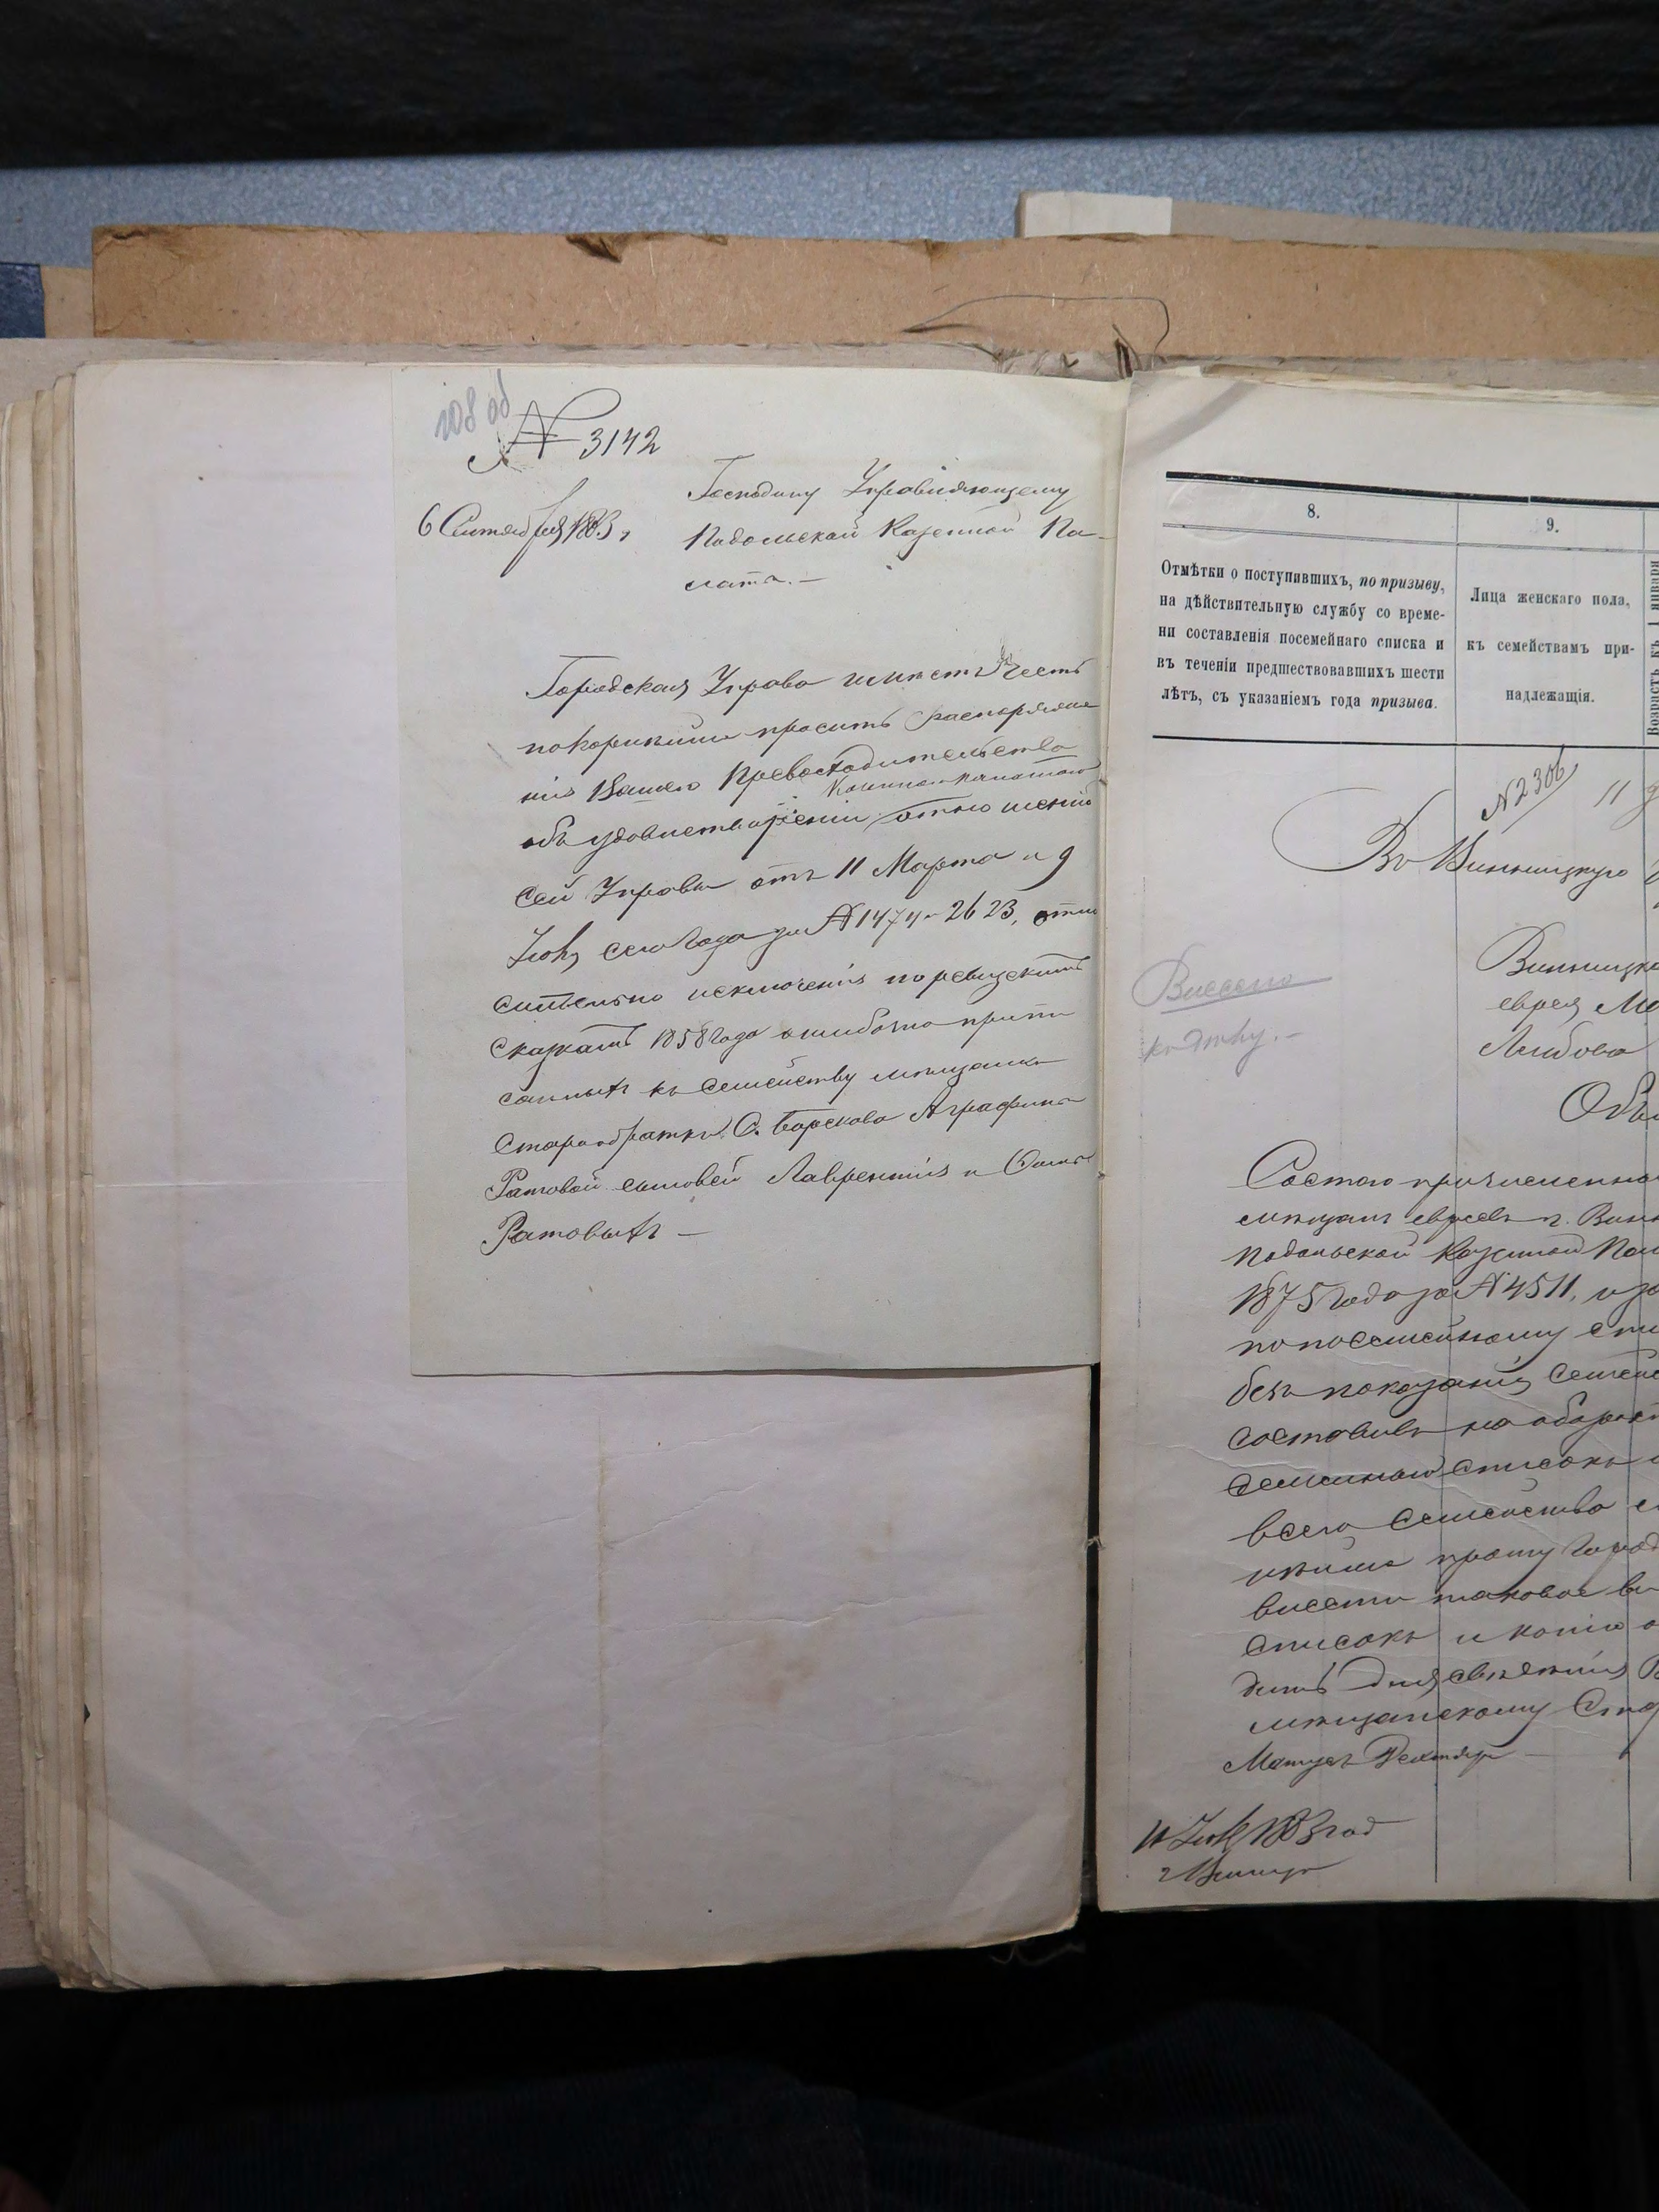 108 об
№ 3142
6 Сентября 1883 г
Господину Управляющему
Подольской Казенной Па-
латы.—
Городская Управа имѣетъ честь
покорнѣйше просить распоряже
нія Вашего Превосходительства
объ удовлетвореніи отношеній
сей Управы отъ 11 Марта и 9
Іюня сего года за № 1474 и 2623, отно
сительно исключенія по ревизскимъ
сказкамъ 1858 года ошибочно припи
санныхъ къ семейству мѣщанки
старообрядки С. Борскова Аграфины
Ратовой сыновей Лаврентія и
Ратовыхъ —
8.
9.
Отмѣтки о поступившихъ, по призыву,
на дѣйствительную службу со време-
ни составленія посемейнаго списка и
въ теченіи предшествовавшихъ шести
лѣтъ, съ указаніемъ года призыва.
Лица женскаго пола,
къ семействамъ при-
надлежащія.
Возрастъ къ 1 января
№ 2306
11
Въ Винницкую
Внесено
къ дѣлу.—
Винницка
еврея
Лейбова
Объ
Состоя причисленны
мѣщане евреевъ г. Вин
Подольской Казенной Пал
1875 года за № 4511, и за
по посемейному спи
безъ показанія семей
составивъ на оборотѣ
семейный списокъ
всего семейства
нѣйше прошу Город
внести таковое въ
списокъ и копію
дить для свѣдѣнія
мѣщанскому Ста
11 Іюня 1883 год
г Винница